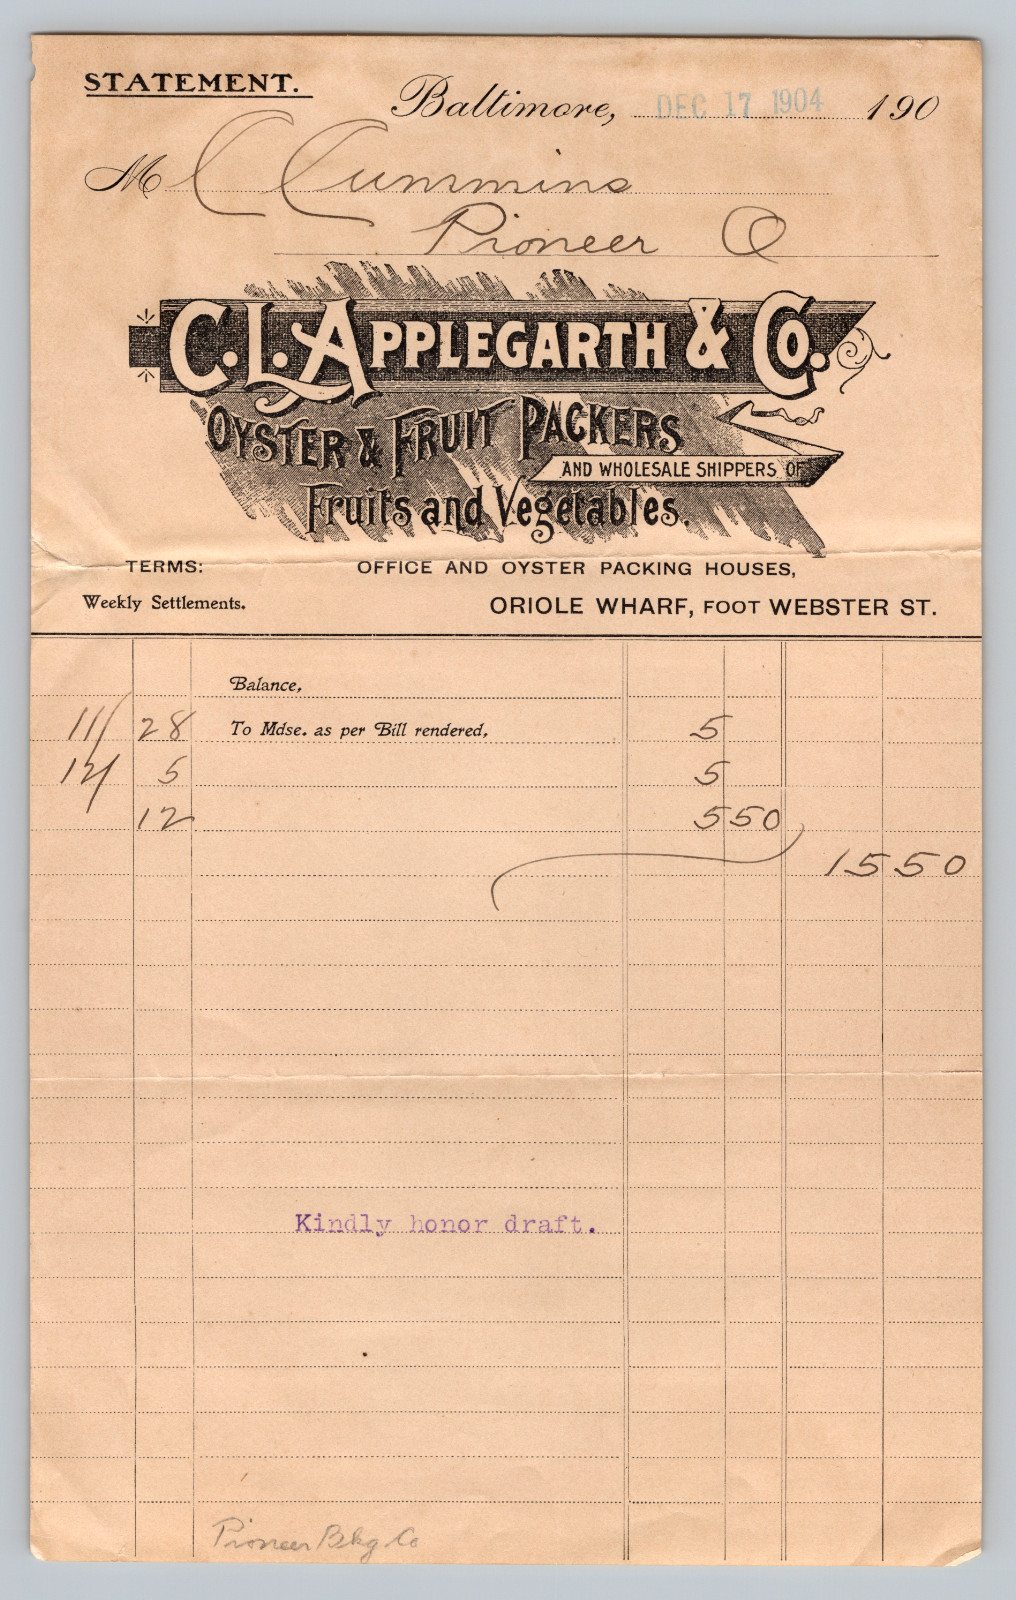 STATEMENT.
Baltimore, DEC 17 1904 190
M C C Cummins
Pioneer O
C. L. APPLEGARTH & CO.
OYSTER & FRUIT PACKERS
AND WHOLESALE SHIPPERS OF
Fruits and Vegetables.
TERMS: OFFICE AND OYSTER PACKING HOUSES,
Weekly Settlements. ORIOLE WHARF, FOOT WEBSTER ST.
Balance,
11/ 28 To Mdse. as per Bill rendered, 5
12/ 5 5
12 5 50
15 50
Kindly honor draft.
Pioneer Bkg Co